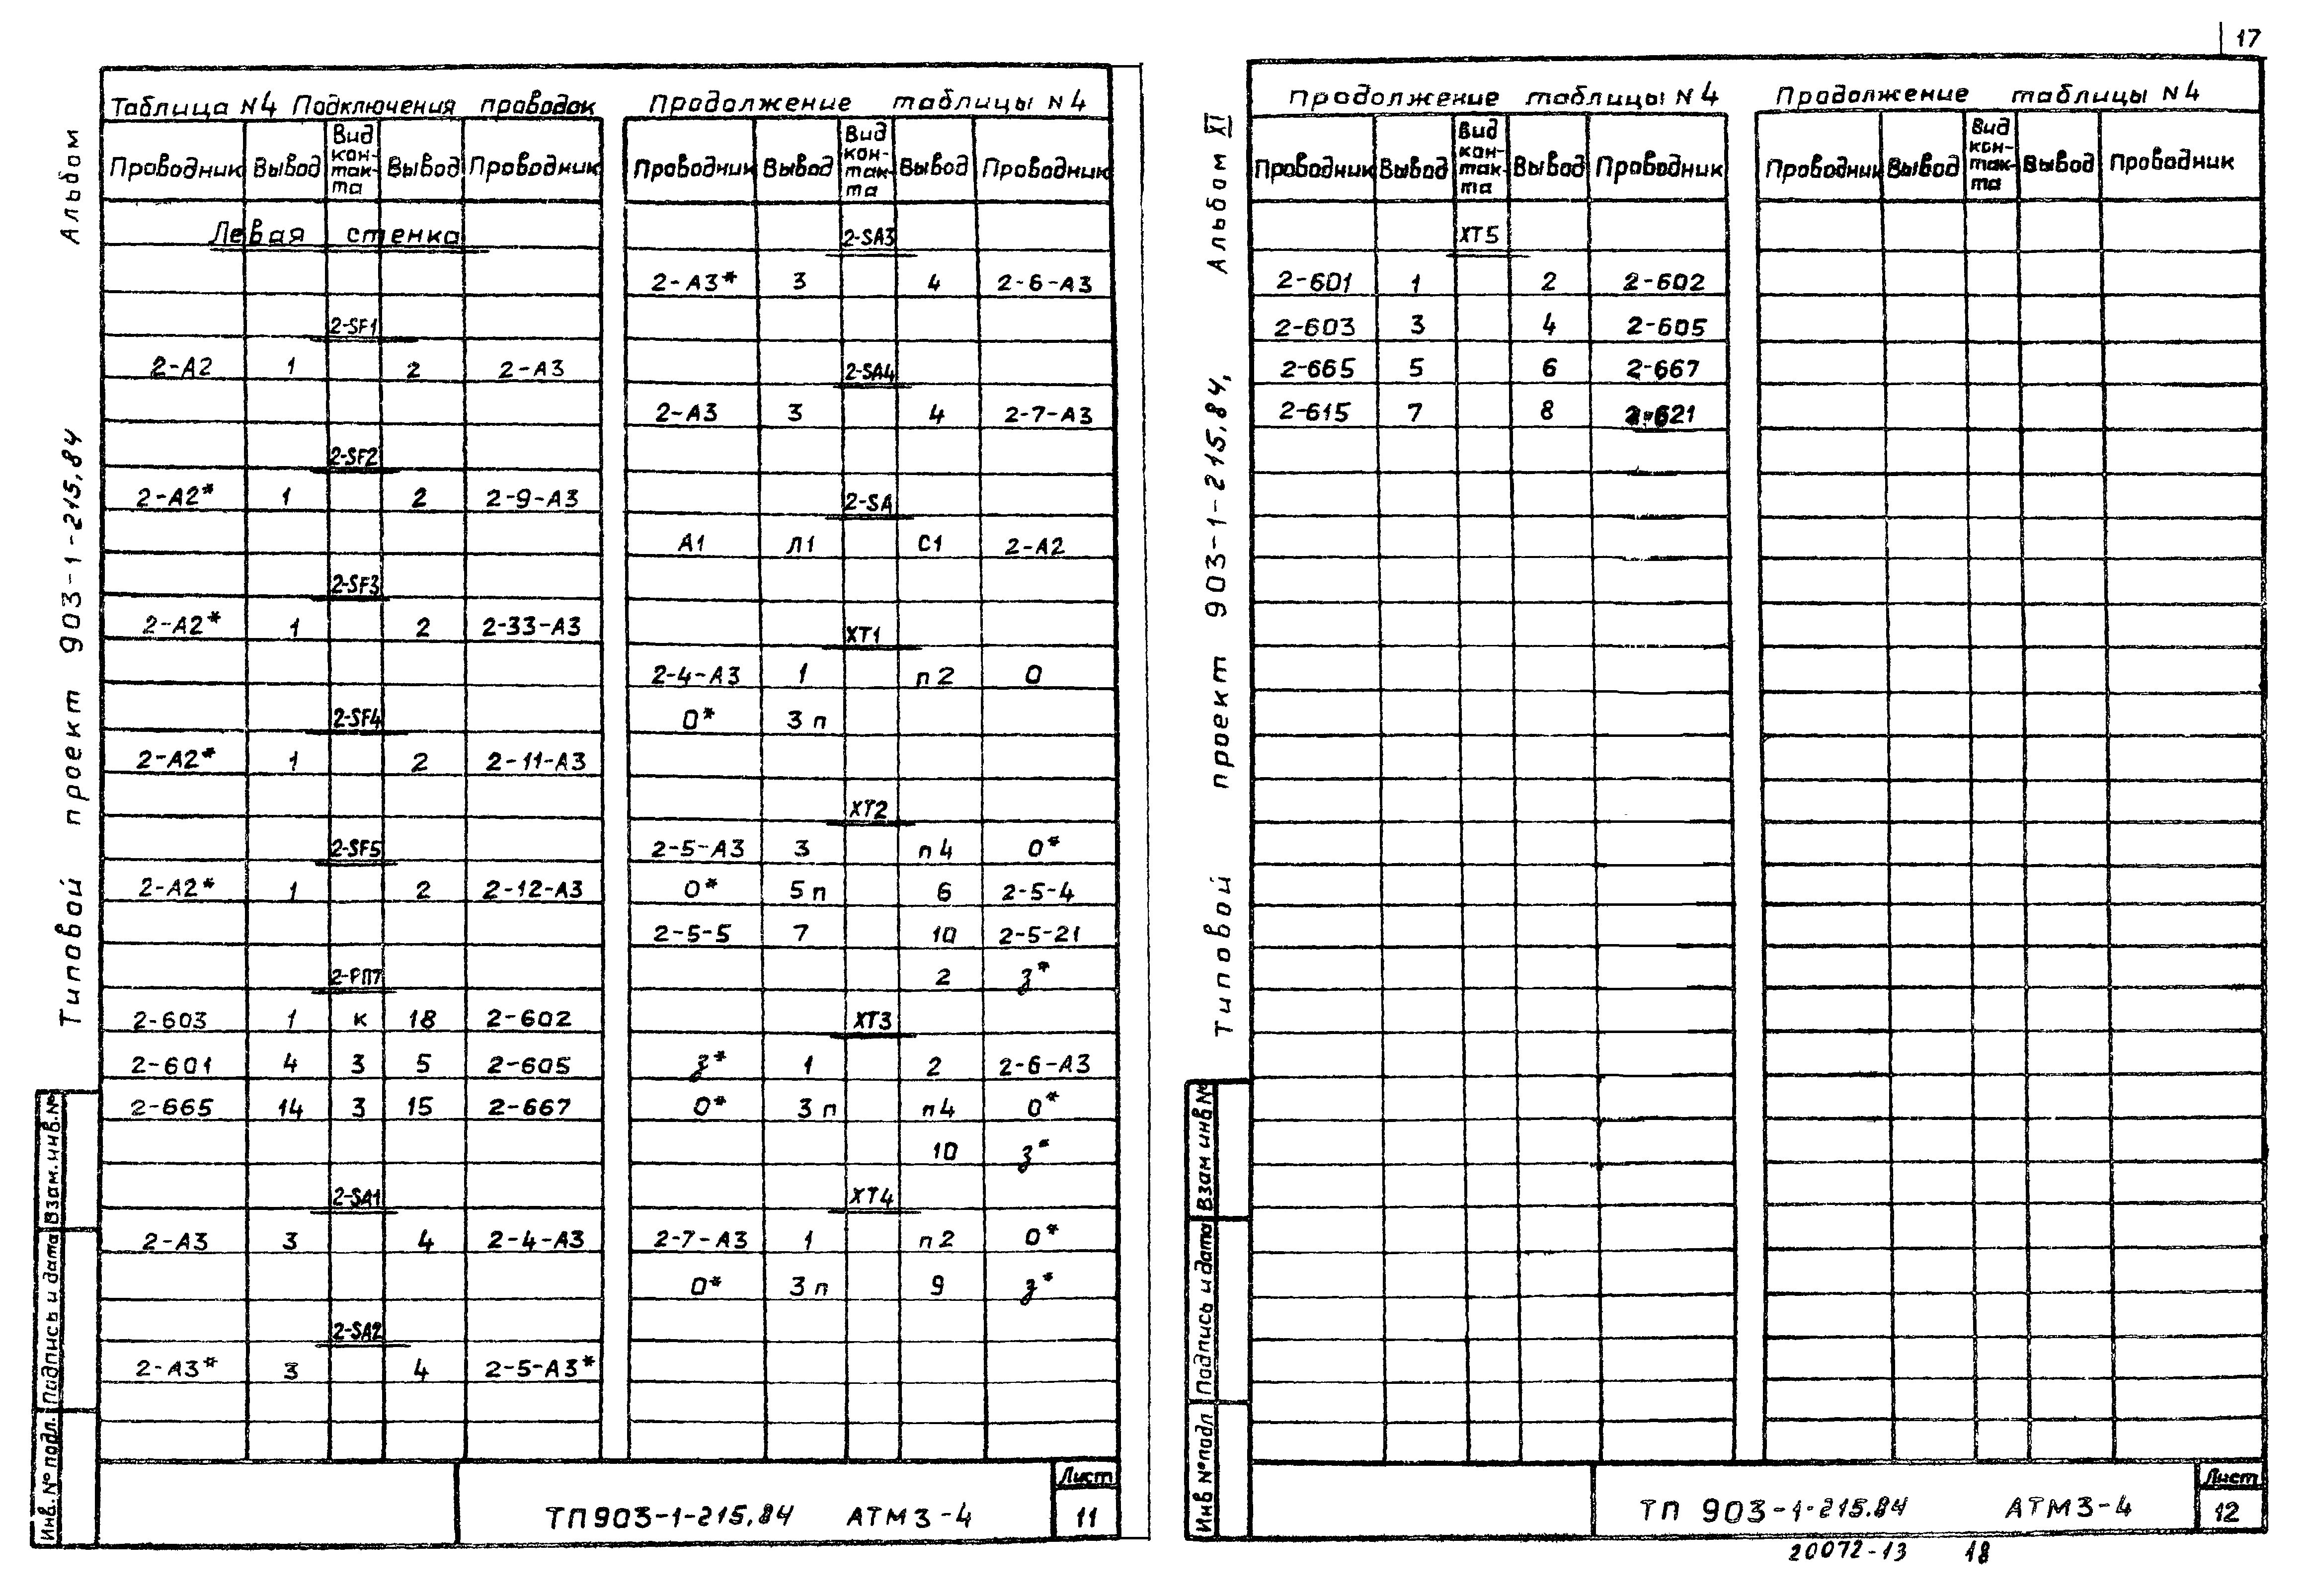 17
Альбом
Типовой проект 903-1-215,84
Таблица №4 Подключения проводок
Проводник Вывод Вид кон-так-та Вывод Проводник
Левая стенка
2-SF1
2-А2 1 2 2-А3
2-SF2
2-А2* 1 2 2-9-А3
2-SF3
2-А2* 1 2 2-33-А3
2-SF4
2-А2* 1 2 2-11-А3
2-SF5
2-А2* 1 2 2-12-А3
2-РП7
2-603 1 к 18 2-602
2-601 4 3 5 2-605
2-665 14 3 15 2-667
2-SA1
2-А3 3 4 2-4-А3
2-SA2
2-А3* 3 4 2-5-А3*
Продолжение таблицы №4
Проводник Вывод Вид кон-так-та Вывод Проводник
2-SA3
2-А3* 3 4 2-6-А3
2-SA4
2-А3 3 4 2-7-А3
2-SA
А1 Л1 С1 2-А2
ХТ1
2-4-А3 1 п2 0
0* 3п
ХТ2
2-5-А3 3 п4 0*
0* 5п 6 2-5-4
2-5-5 7 10 2-5-21
2 з*
ХТ3
з* 1 2 2-6-А3
0* 3п п4 0*
10 з*
ХТ4
2-7-А3 1 п2 0*
0* 3п 9 з*
Инв. № подл. Подпись и дата Взам. инв. №
ТП903-1-215,84 АТМ3-4
Лист
11
Альбом XI
Типовой проект 903-1-215,84,
Продолжение таблицы №4
Проводник Вывод Вид кон-так-та Вывод Проводник
ХТ5
2-601 1 2 2-602
2-603 3 4 2-605
2-665 5 6 2-667
2-615 7 8 2-621
Продолжение таблицы №4
Проводник Вывод Вид кон-так-та Вывод Проводник
Инв № подл Подпись и дата Взам инв №
ТП 903-1-215.84 АТМ3-4
Лист
12
20072-13 18